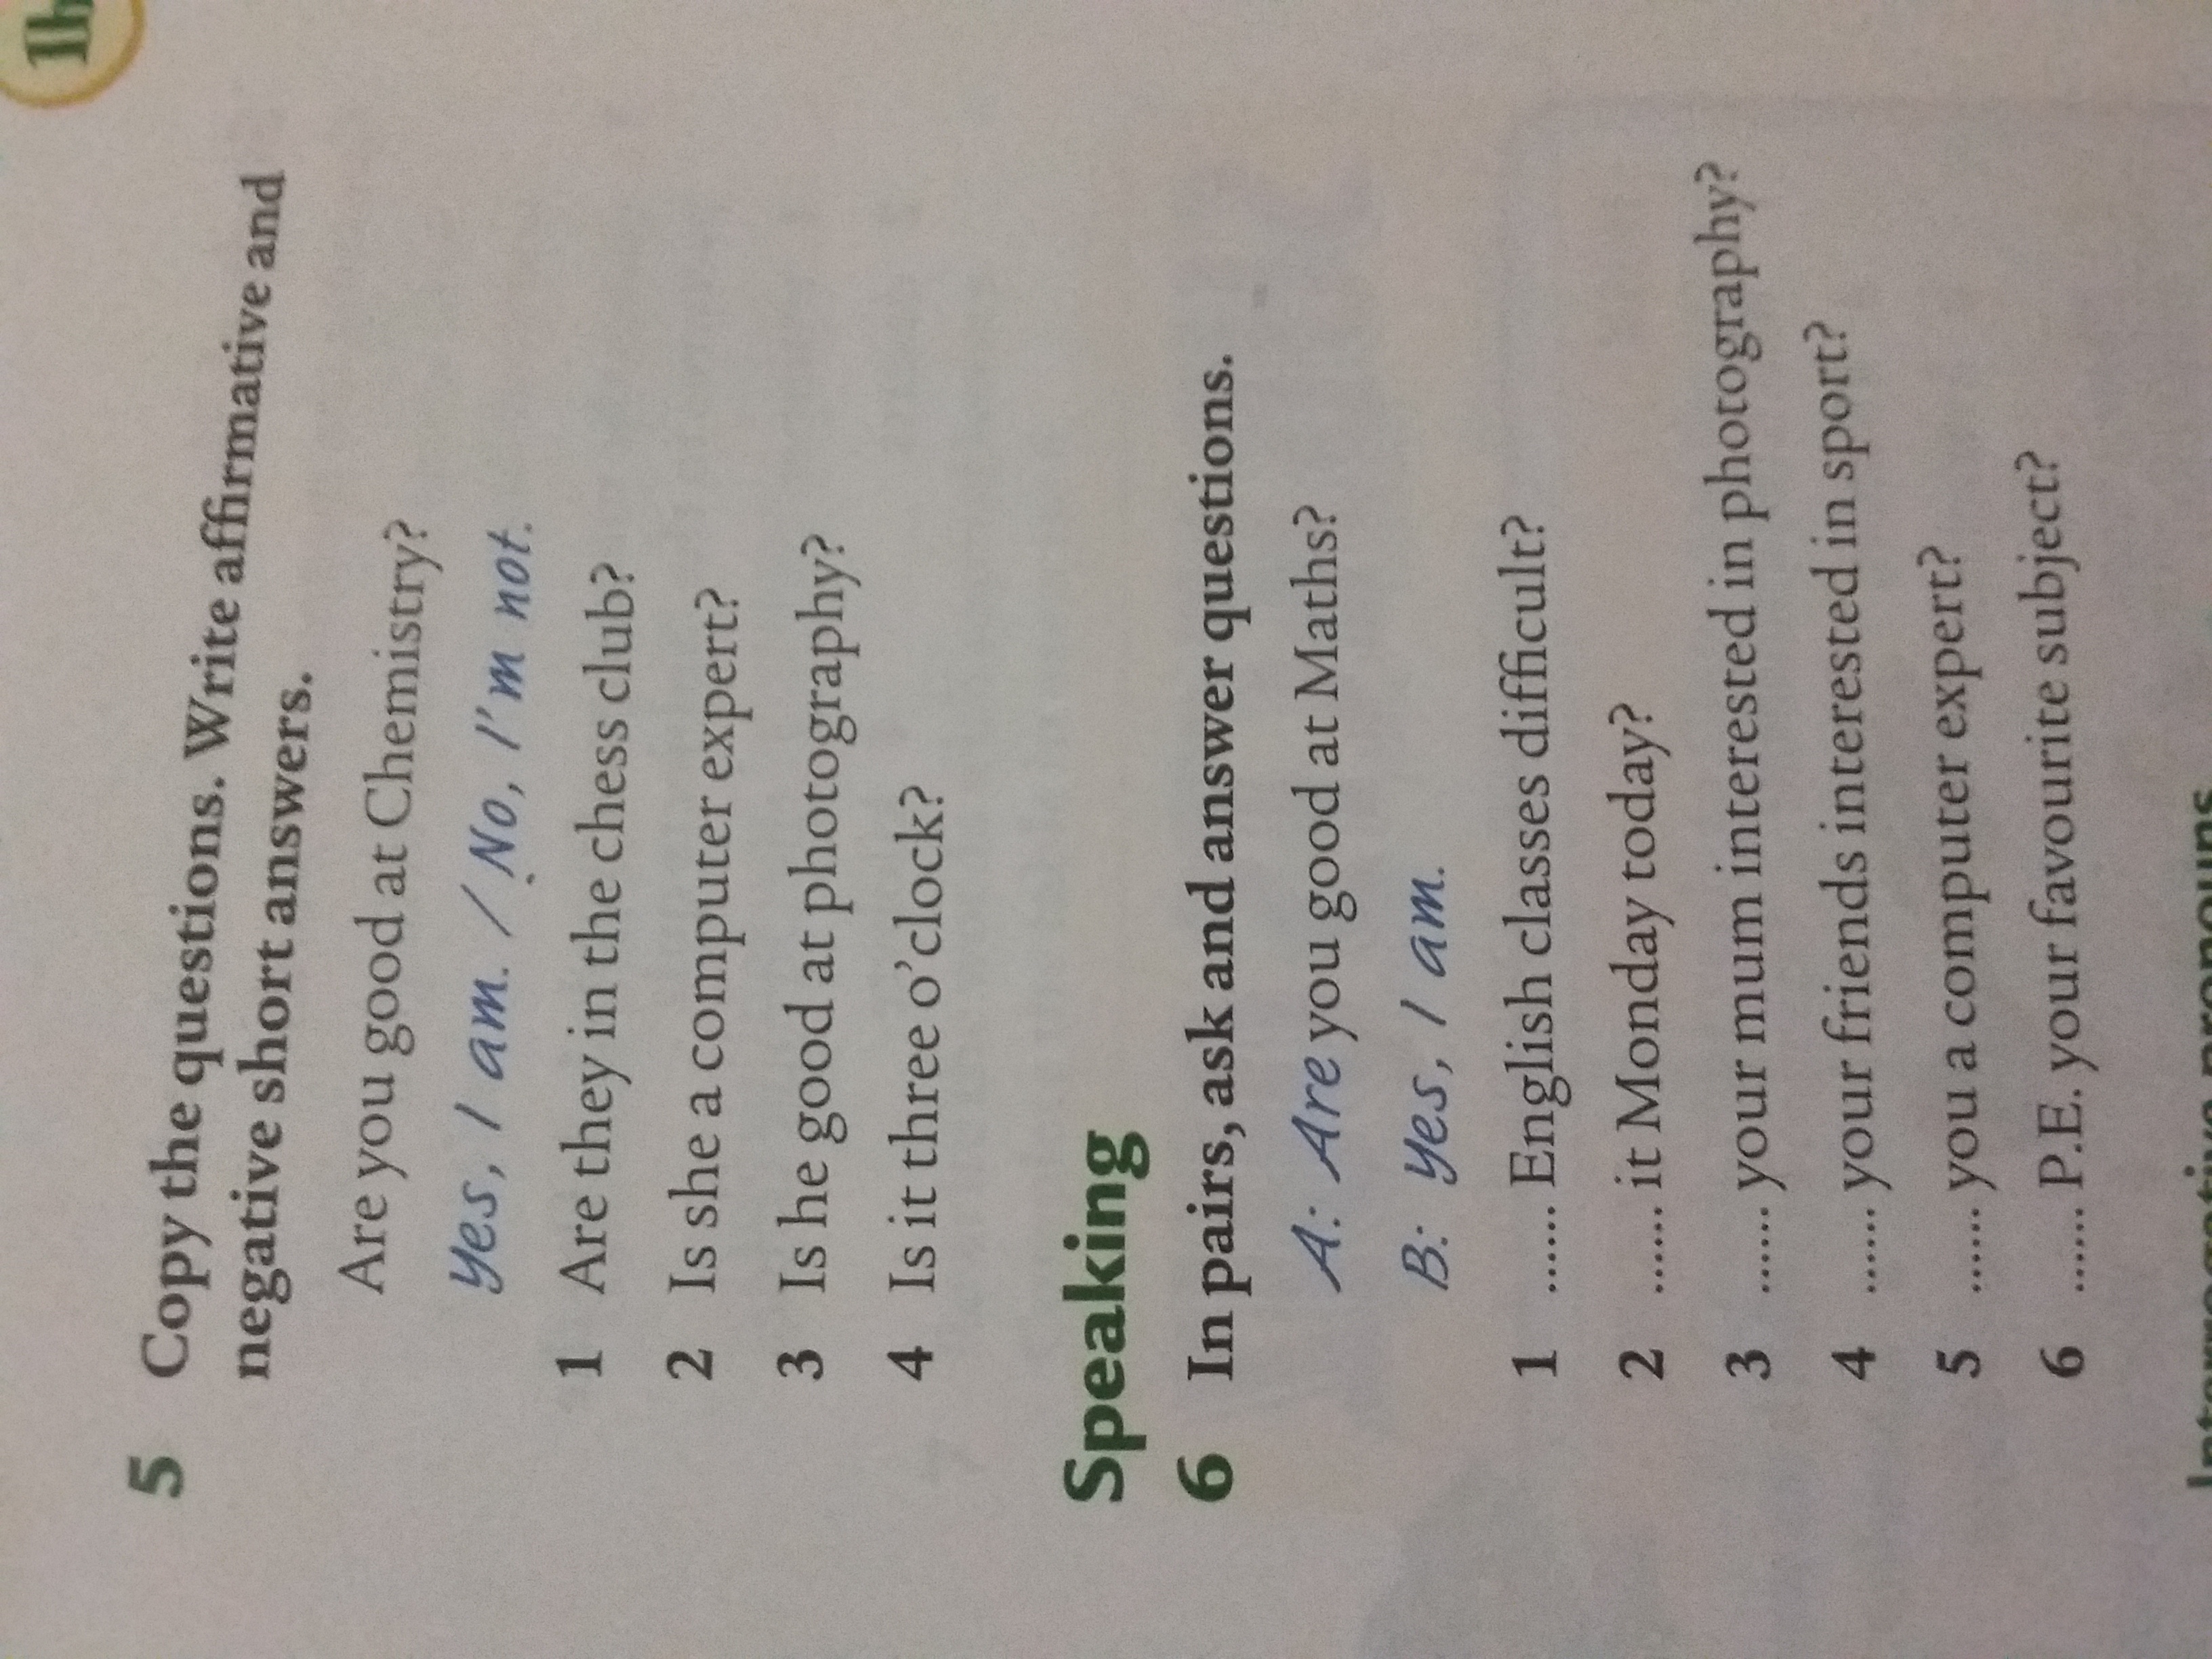 1b
5 Copy the questions. Write affirmative and
negative short answers.
Are you good at Chemistry?
Yes, I am. / No, I'm not.
1 Are they in the chess club?
2 Is she a computer expert?
3 Is he good at photography?
4 Is it three o'clock?
Speaking
6 In pairs, ask and answer questions.
A: Are you good at Maths?
B: Yes, I am.
1 ...... English classes difficult?
2 ...... it Monday today?
3 ...... your mum interested in photography?
4 ...... your friends interested in sport?
5 ...... you a computer expert?
6 ...... P.E. your favourite subject?
Interrogative pronouns